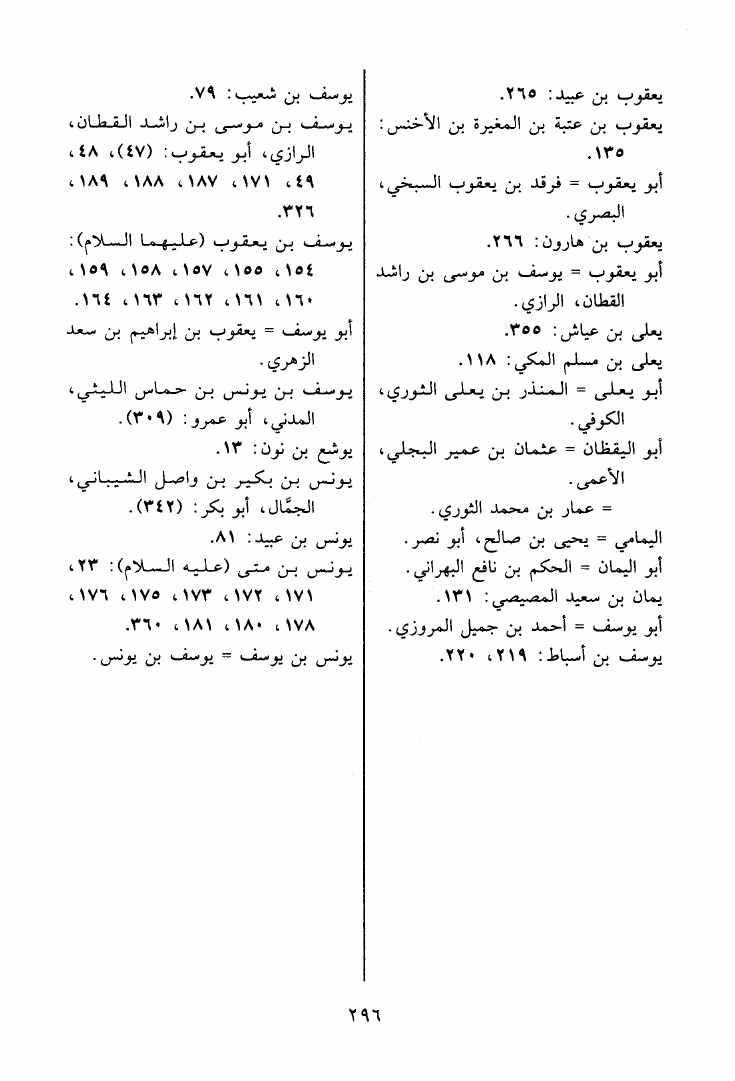 يعقوب بن عبيد: ٢٦٥.
يعقوب بن عتبة بن المغيرة بن الأخنس:
١٣٥.
أبو يعقوب = فرقد بن يعقوب السبخي،
البصري.
يعقوب بن هارون: ٢٦٦.
أبو يعقوب = يوسف بن موسى بن راشد
القطان، الرازي.
يعلى بن عياش: ٣٥٥.
يعلى بن مسلم المكي: ١١٨.
أبو يعلى = المنذر بن يعلى الثوري،
الكوفي.
أبو اليقظان = عثمان بن عمير البجلي،
الأعمى.
= عمار بن محمد الثوري.
اليمامي = يحيى بن صالح، أبو نصر.
أبو اليمان = الحكم بن نافع البهراني.
يمان بن سعيد المصيصي: ١٣١.
أبو يوسف = أحمد بن جميل المروزي.
يوسف بن أسباط: ٢١٩، ٢٢٠.
يوسف بن شعيب: ٧٩.
يوسف بن موسى بن راشد القطان،
الرازي، أبو يعقوب: (٤٧)، ٤٨،
٤٩، ١٧١، ١٨٧، ١٨٨، ١٨٩،
٣٢٦.
يوسف بن يعقوب (عليهما السلام):
١٥٤، ١٥٥، ١٥٧، ١٥٨، ١٥٩،
١٦٠، ١٦١، ١٦٢، ١٦٣، ١٦٤.
أبو يوسف = يعقوب بن إبراهيم بن سعد
الزهري.
يوسف بن يونس بن حماس الليثي،
المدني، أبو عمرو: (٣٠٩).
يوشع بن نون: ١٣.
يونس بن بكير بن واصل الشيباني،
الجمَّال، أبو بكر: (٣٤٢).
يونس بن عبيد: ٨١.
يونس بن متى (عليه السلام): ٢٣،
١٧١، ١٧٢، ١٧٣، ١٧٥، ١٧٦،
١٧٨، ١٨٠، ١٨١، ٣٦٠.
يونس بن يوسف = يوسف بن يونس.
٢٩٦